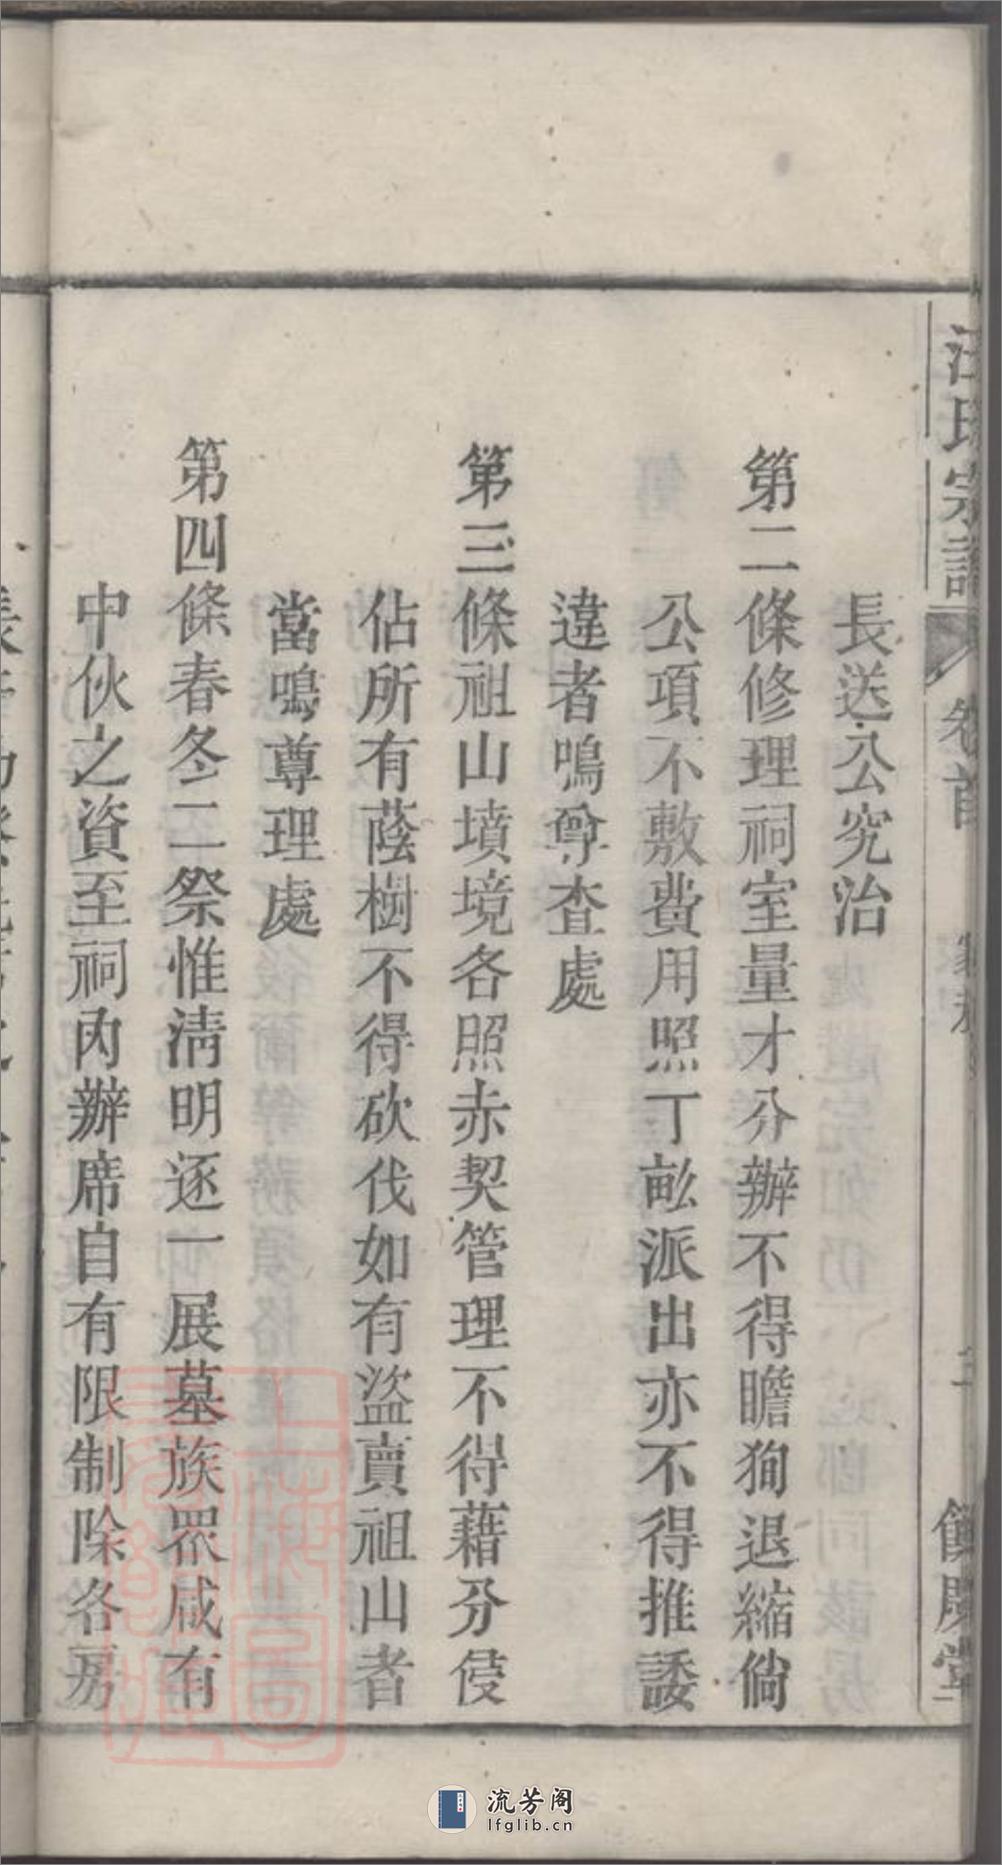 汪氏宗譜
卷首
長送公究治
第二條修理祠室量才分辦不得瞻狥退縮倘
公項不敷費用照丁畝派出亦不得推諉
違者鳴尊查處
第三條祖山墳境各照赤契管理不得藉分侵
佔所有蔭樹不得砍伐如有盜賣祖山者
當鳴尊理處
第四條春冬二祭惟清明逐一展墓族眾咸有
中伙之資至祠內辦席自有限制除各房
上海圖書館藏
流芳阁
lfglib.cn